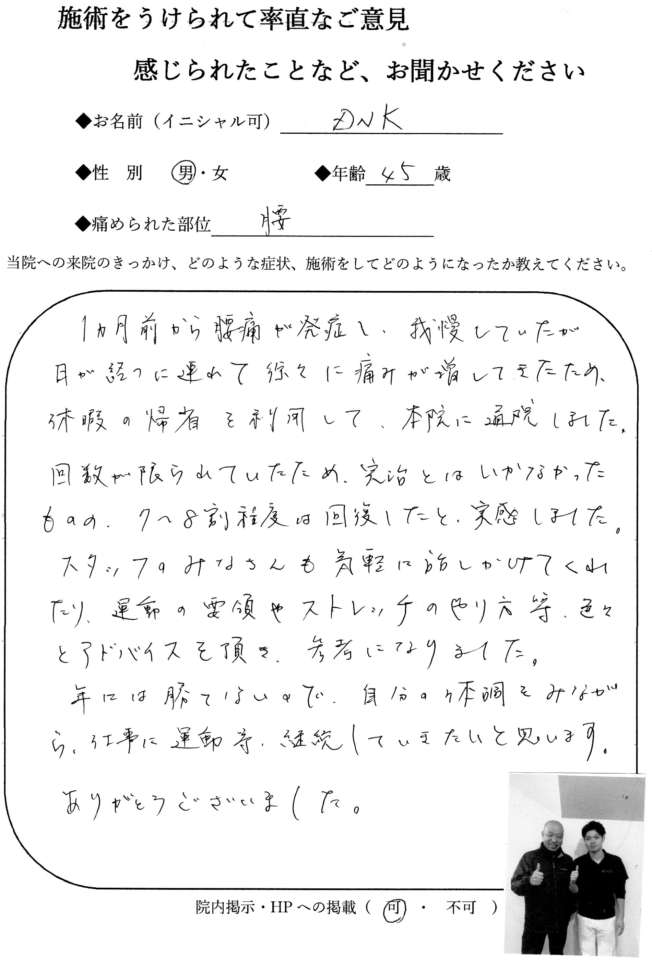 施術をうけられて率直なご意見
感じられたことなど、お聞かせください
◆お名前（イニシャル可） DNK
◆性 別 男・女 ◆年齢 45 歳
◆痛められた部位 腰
当院への来院のきっかけ、どのような症状、施術をしてどのようになったか教えてください。
1カ月前から腰痛が発症し、我慢していたが
日が経つに連れて徐々に痛みが増してきたため、
休暇の帰省を利用して、本院に通院しました。
回数が限られていたため、完治とはいかなかった
ものの、7～8割程度は回復したと、実感しました。
スタッフのみなさんも気軽に話しかけてくれ
たり、運動の要領やストレッチのやり方等、色々
とアドバイスを頂き、参考になりました。
年には勝てないので、自分の体調をみなが
ら、仕事に運動等、継続していきたいと思います。
ありがとうございました。
院内掲示・HPへの掲載（ 可 ・ 不可 ）